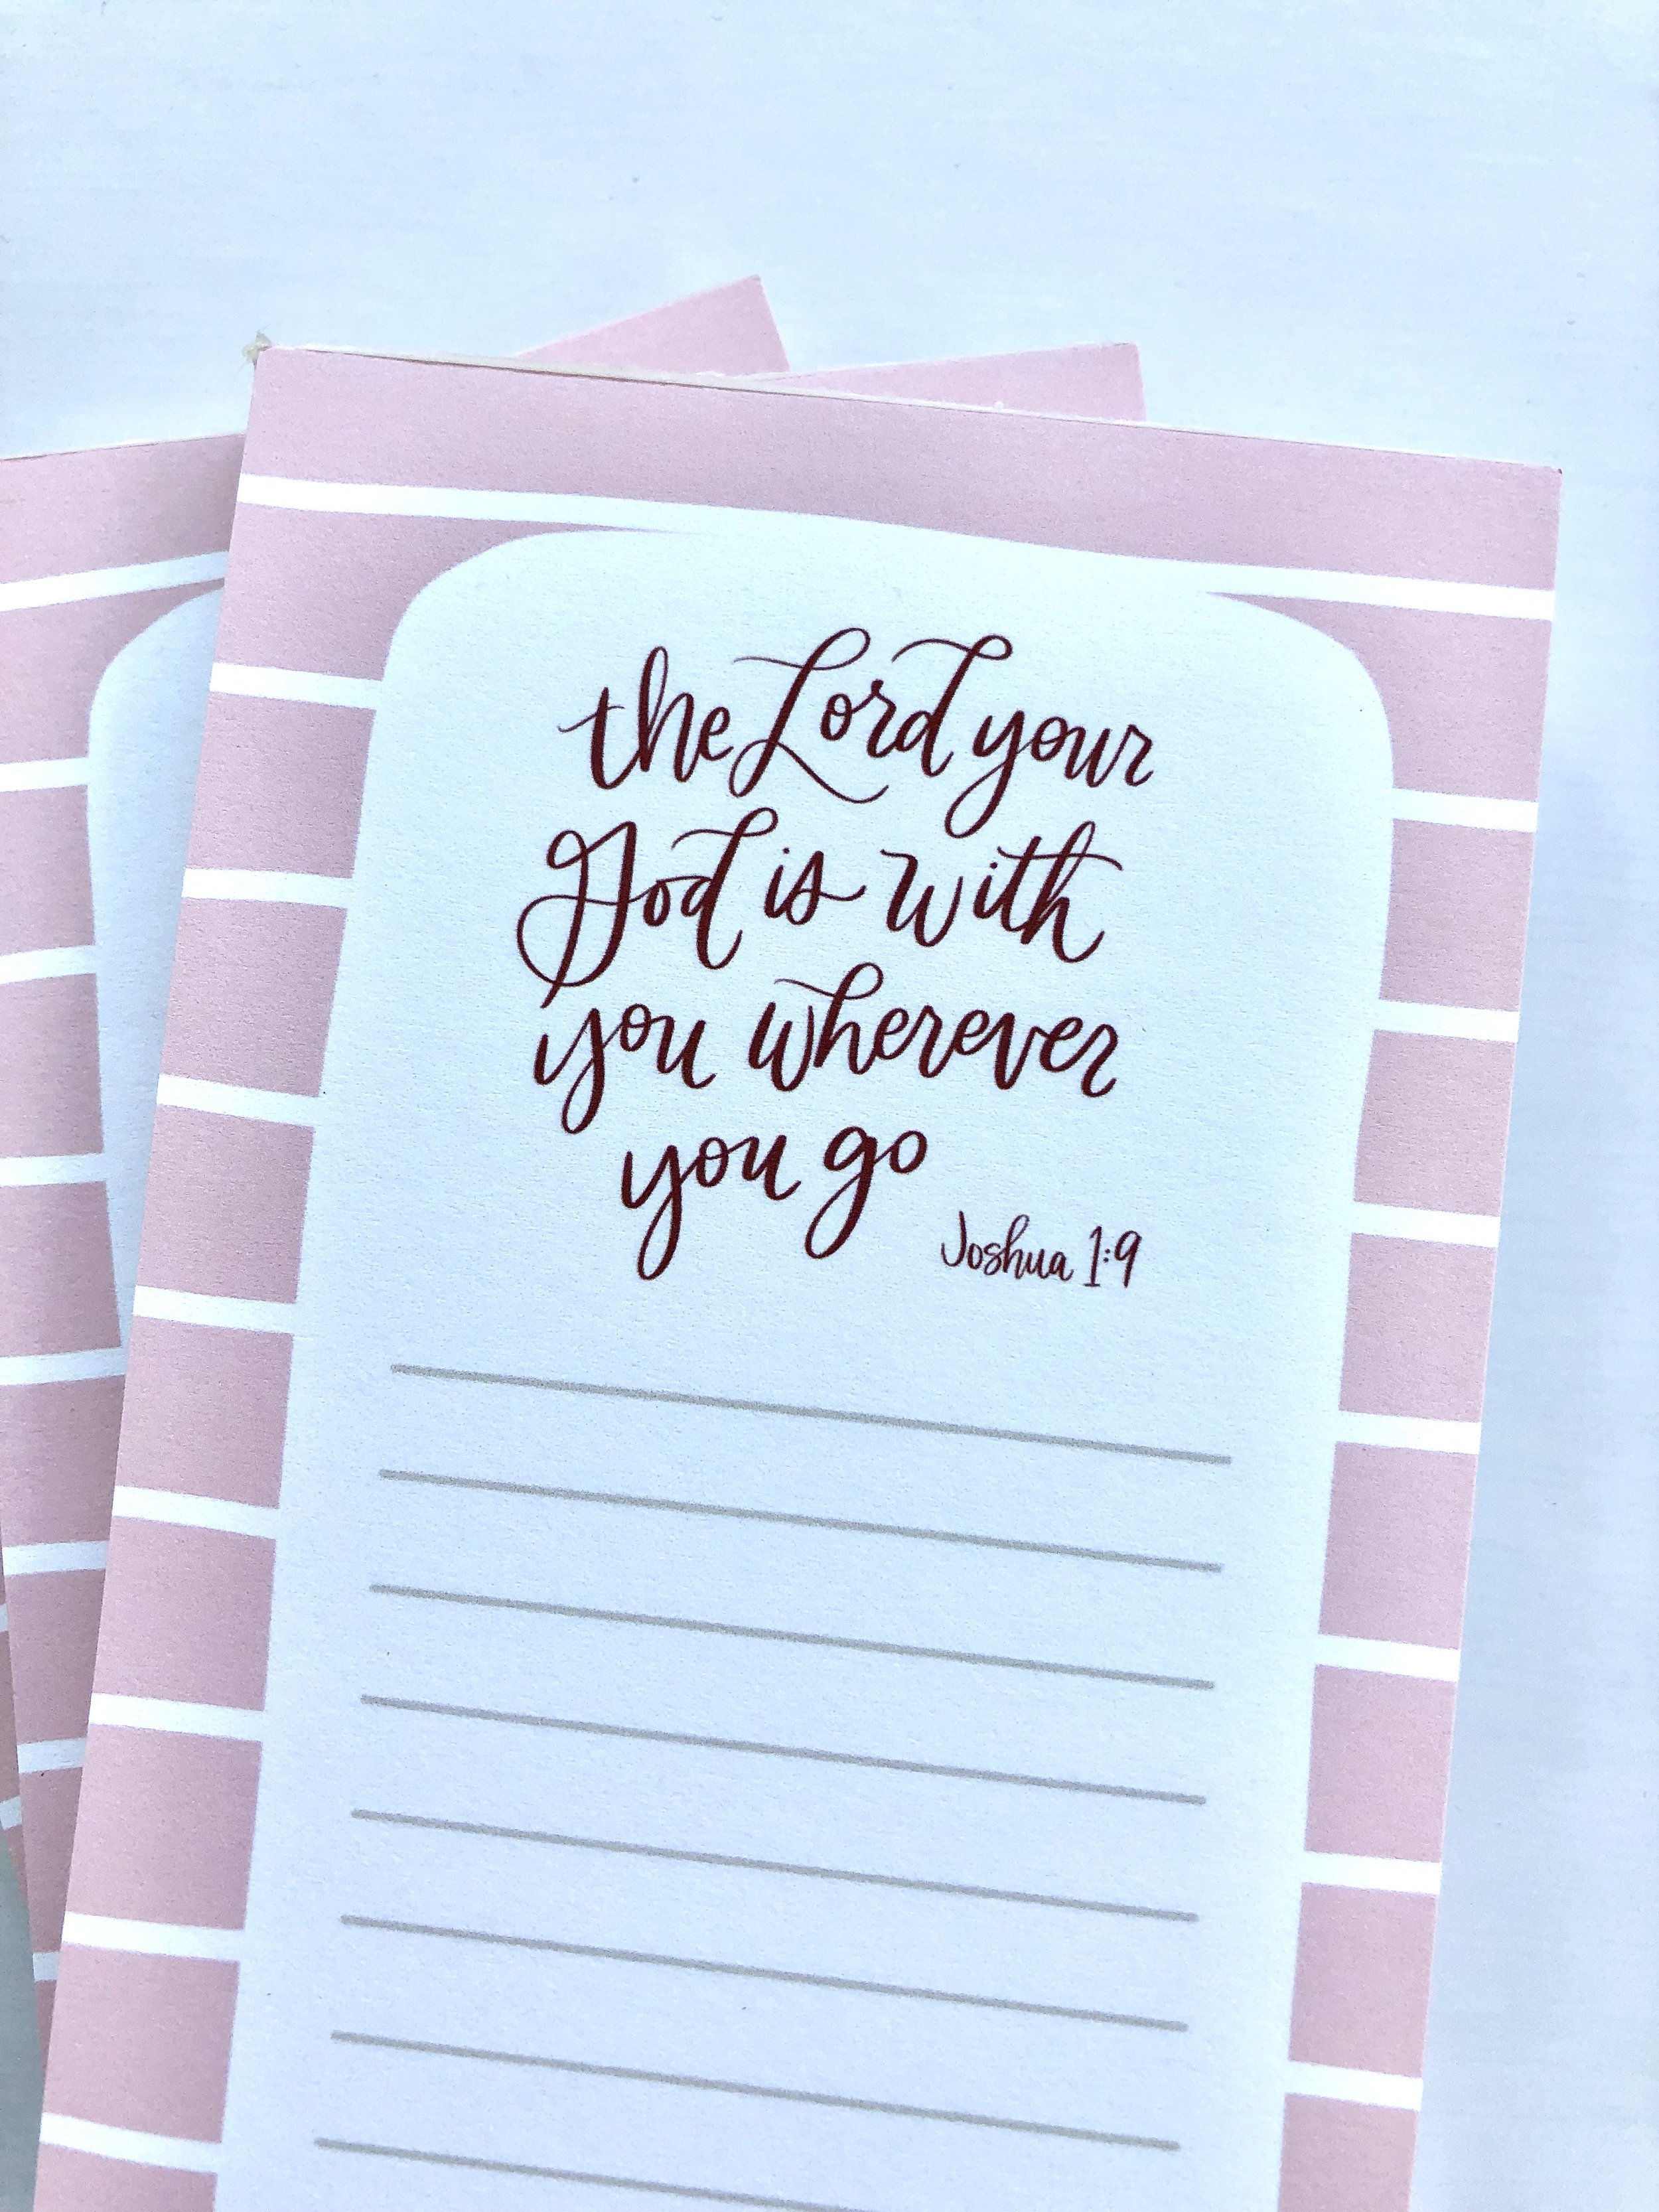 the Lord your
God is with
you wherever
you go
Joshua 1:9